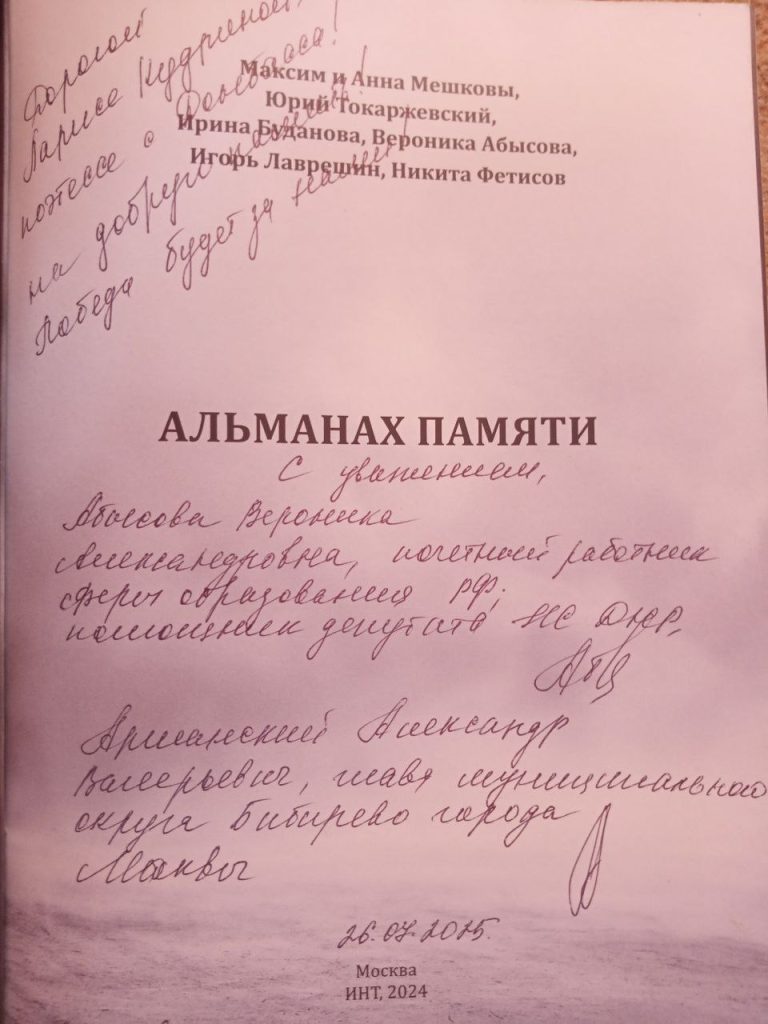 Дорогой
Ларисе Кудриной,
поэтессе с Донбасса!
на добрую память!
Победа будет за нами!
Максим и Анна Мешковы,
Юрий Токаржевский,
Ирина Буданова, Вероника Абысова,
Игорь Лаврешин, Никита Фетисов
АЛЬМАНАХ ПАМЯТИ
С уважением,
Абысова Вероника
Александровна, почетный работник
сферы образования РФ,
помощник депутата НС ДНР,
Арманский Александр
Валерьевич, глава муниципального
округа Бибирево города
Москвы
26.07.2025.
Москва
ИНТ, 2024